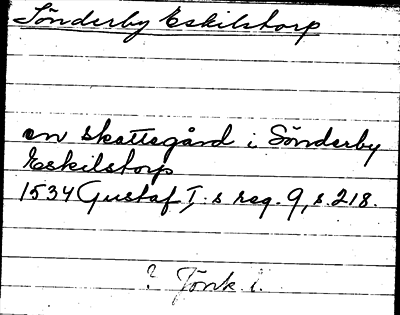 Sönderby Eskilstorp
en skattegård i Sönderby
Eskilstorp
1534 Gustaf I.s reg. 9, s. 218.
? Tönk. i.